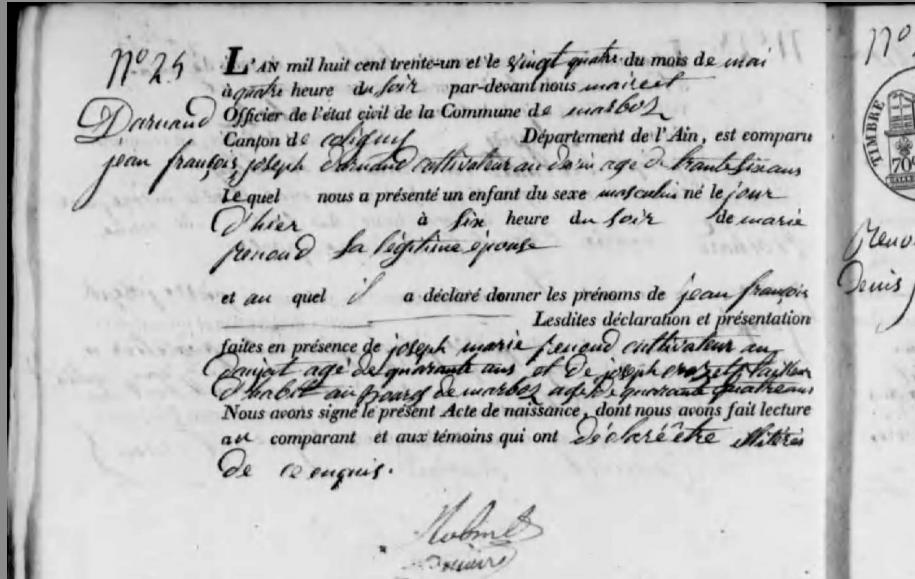 N° 25
Darnand
jean françois
L'AN mil huit cent trente-un et le vingt quatre du mois de mai
à quatre heure du soir par-devant nous maire et
Officier de l'état civil de la Commune de marboz
Canton de coligny Département de l'Ain, est comparu
joseph darnand cultivateur au agé de trente six ans
Le quel nous a présenté un enfant du sexe masculin né le jour
d'hier à six heure du soir de marie
penond sa légitime épouse
et au quel il a déclaré donner les prénoms de jean françois
Lesdites déclaration et présentation
faites en présence de joseph marie penond cultivateur au
agé de quarante ans et de joseph tailleur
d'habit au bourg de marboz agé de quarante quatre ans
Nous avons signé le présent Acte de naissance, dont nous avons fait lecture
au comparant et aux témoins qui ont déclaré être illitérés
de ce enquis.
maire
N°
TIMBRE
70
Denis